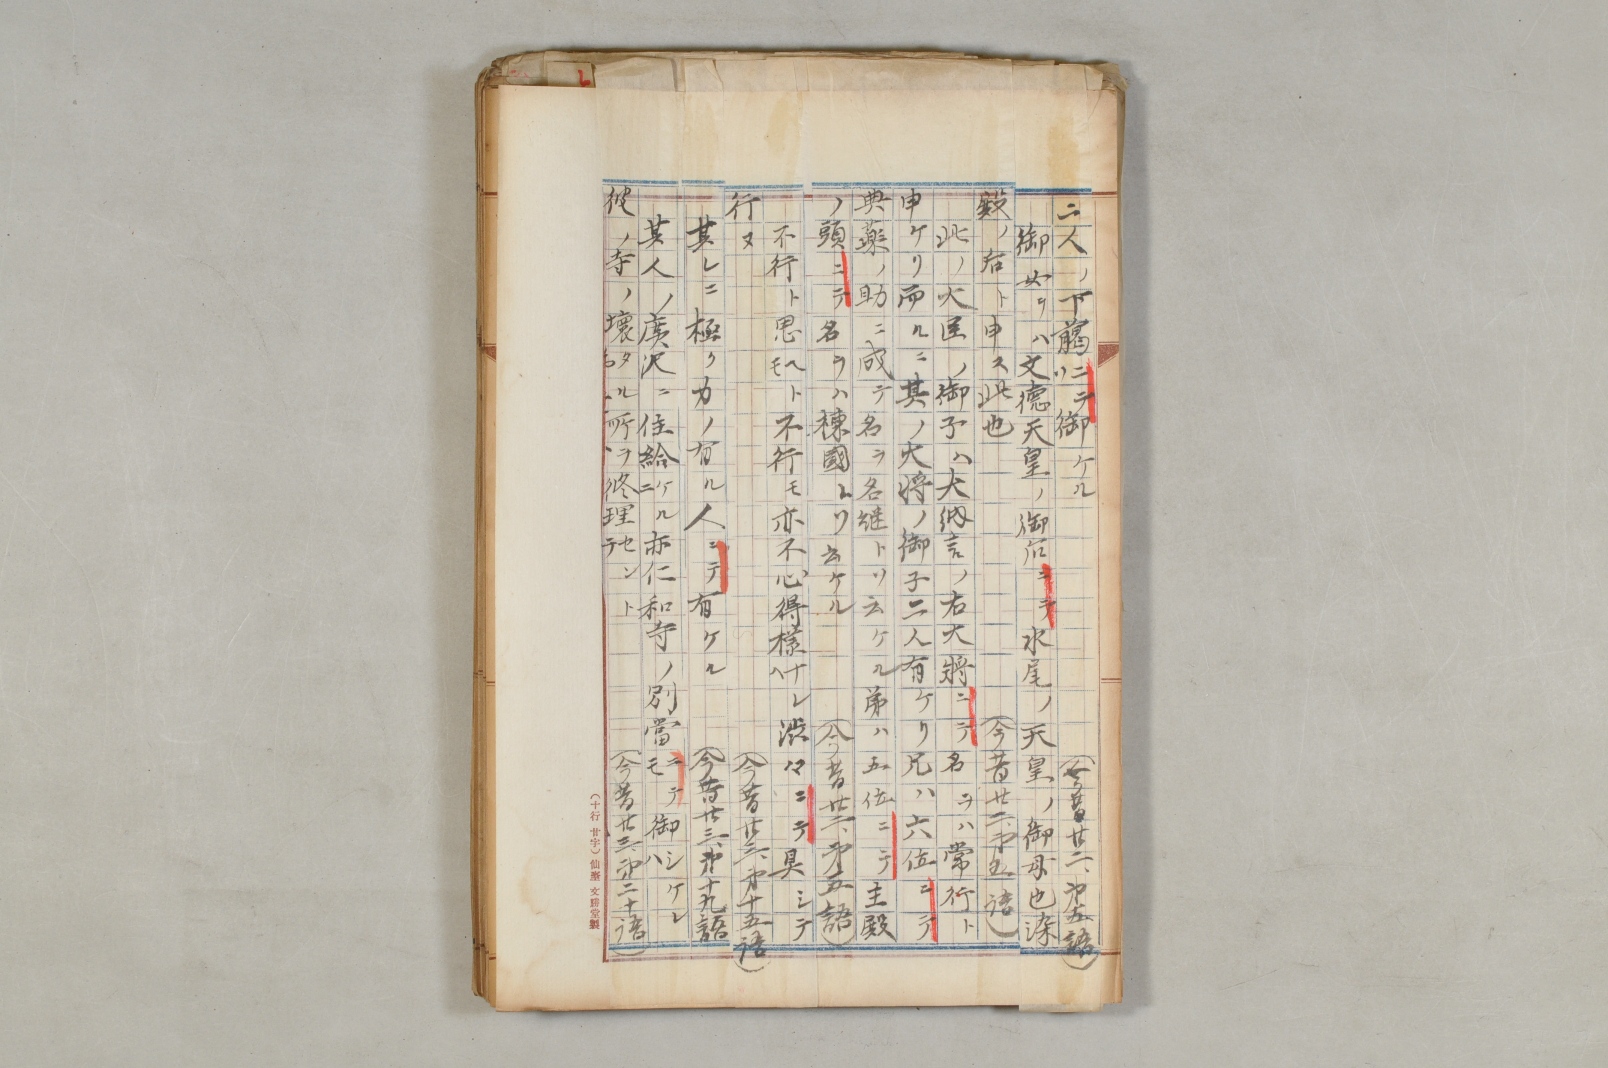 二人ノ下﨟ニテ御ケル(今昔廿二、第五語)
御女ヲハ文德天皇ノ御后ニテ水尾ノ天皇ノ御母也染
殿ノ后ト申ス此也(今昔廿二、第五語)
此ノ大臣ノ御子ハ大納言ノ右大將ニテ名ヲハ常行ト
申ケリ而ルニ其ノ大將ノ御子二人有ケリ兄ハ六位ニテ
典藥ノ助ニ成テ名ヲ名継トソ云ケル弟ハ五位ニテ主殿
ノ頭ニテ名ヲハ棟國トソ云ケル(今昔廿二、第五語)
不行ト思ヘトモ不行モ亦不心得樣ナレハ澁々ニテ具シテ
行ヌ(今昔廿三、第十五語)
其レニ極ク力ノ有ル人ニテ有ケル(今昔廿三、第十九語)
其人ノ廣沢ニ住給ケル亦仁和寺ノ別當ニテモ御シケレハ
彼ノ寺ノ壞タル所ヲ修理セントテ(今昔廿三、第二十語)
(十行 廿字) 仙臺 文勝堂製